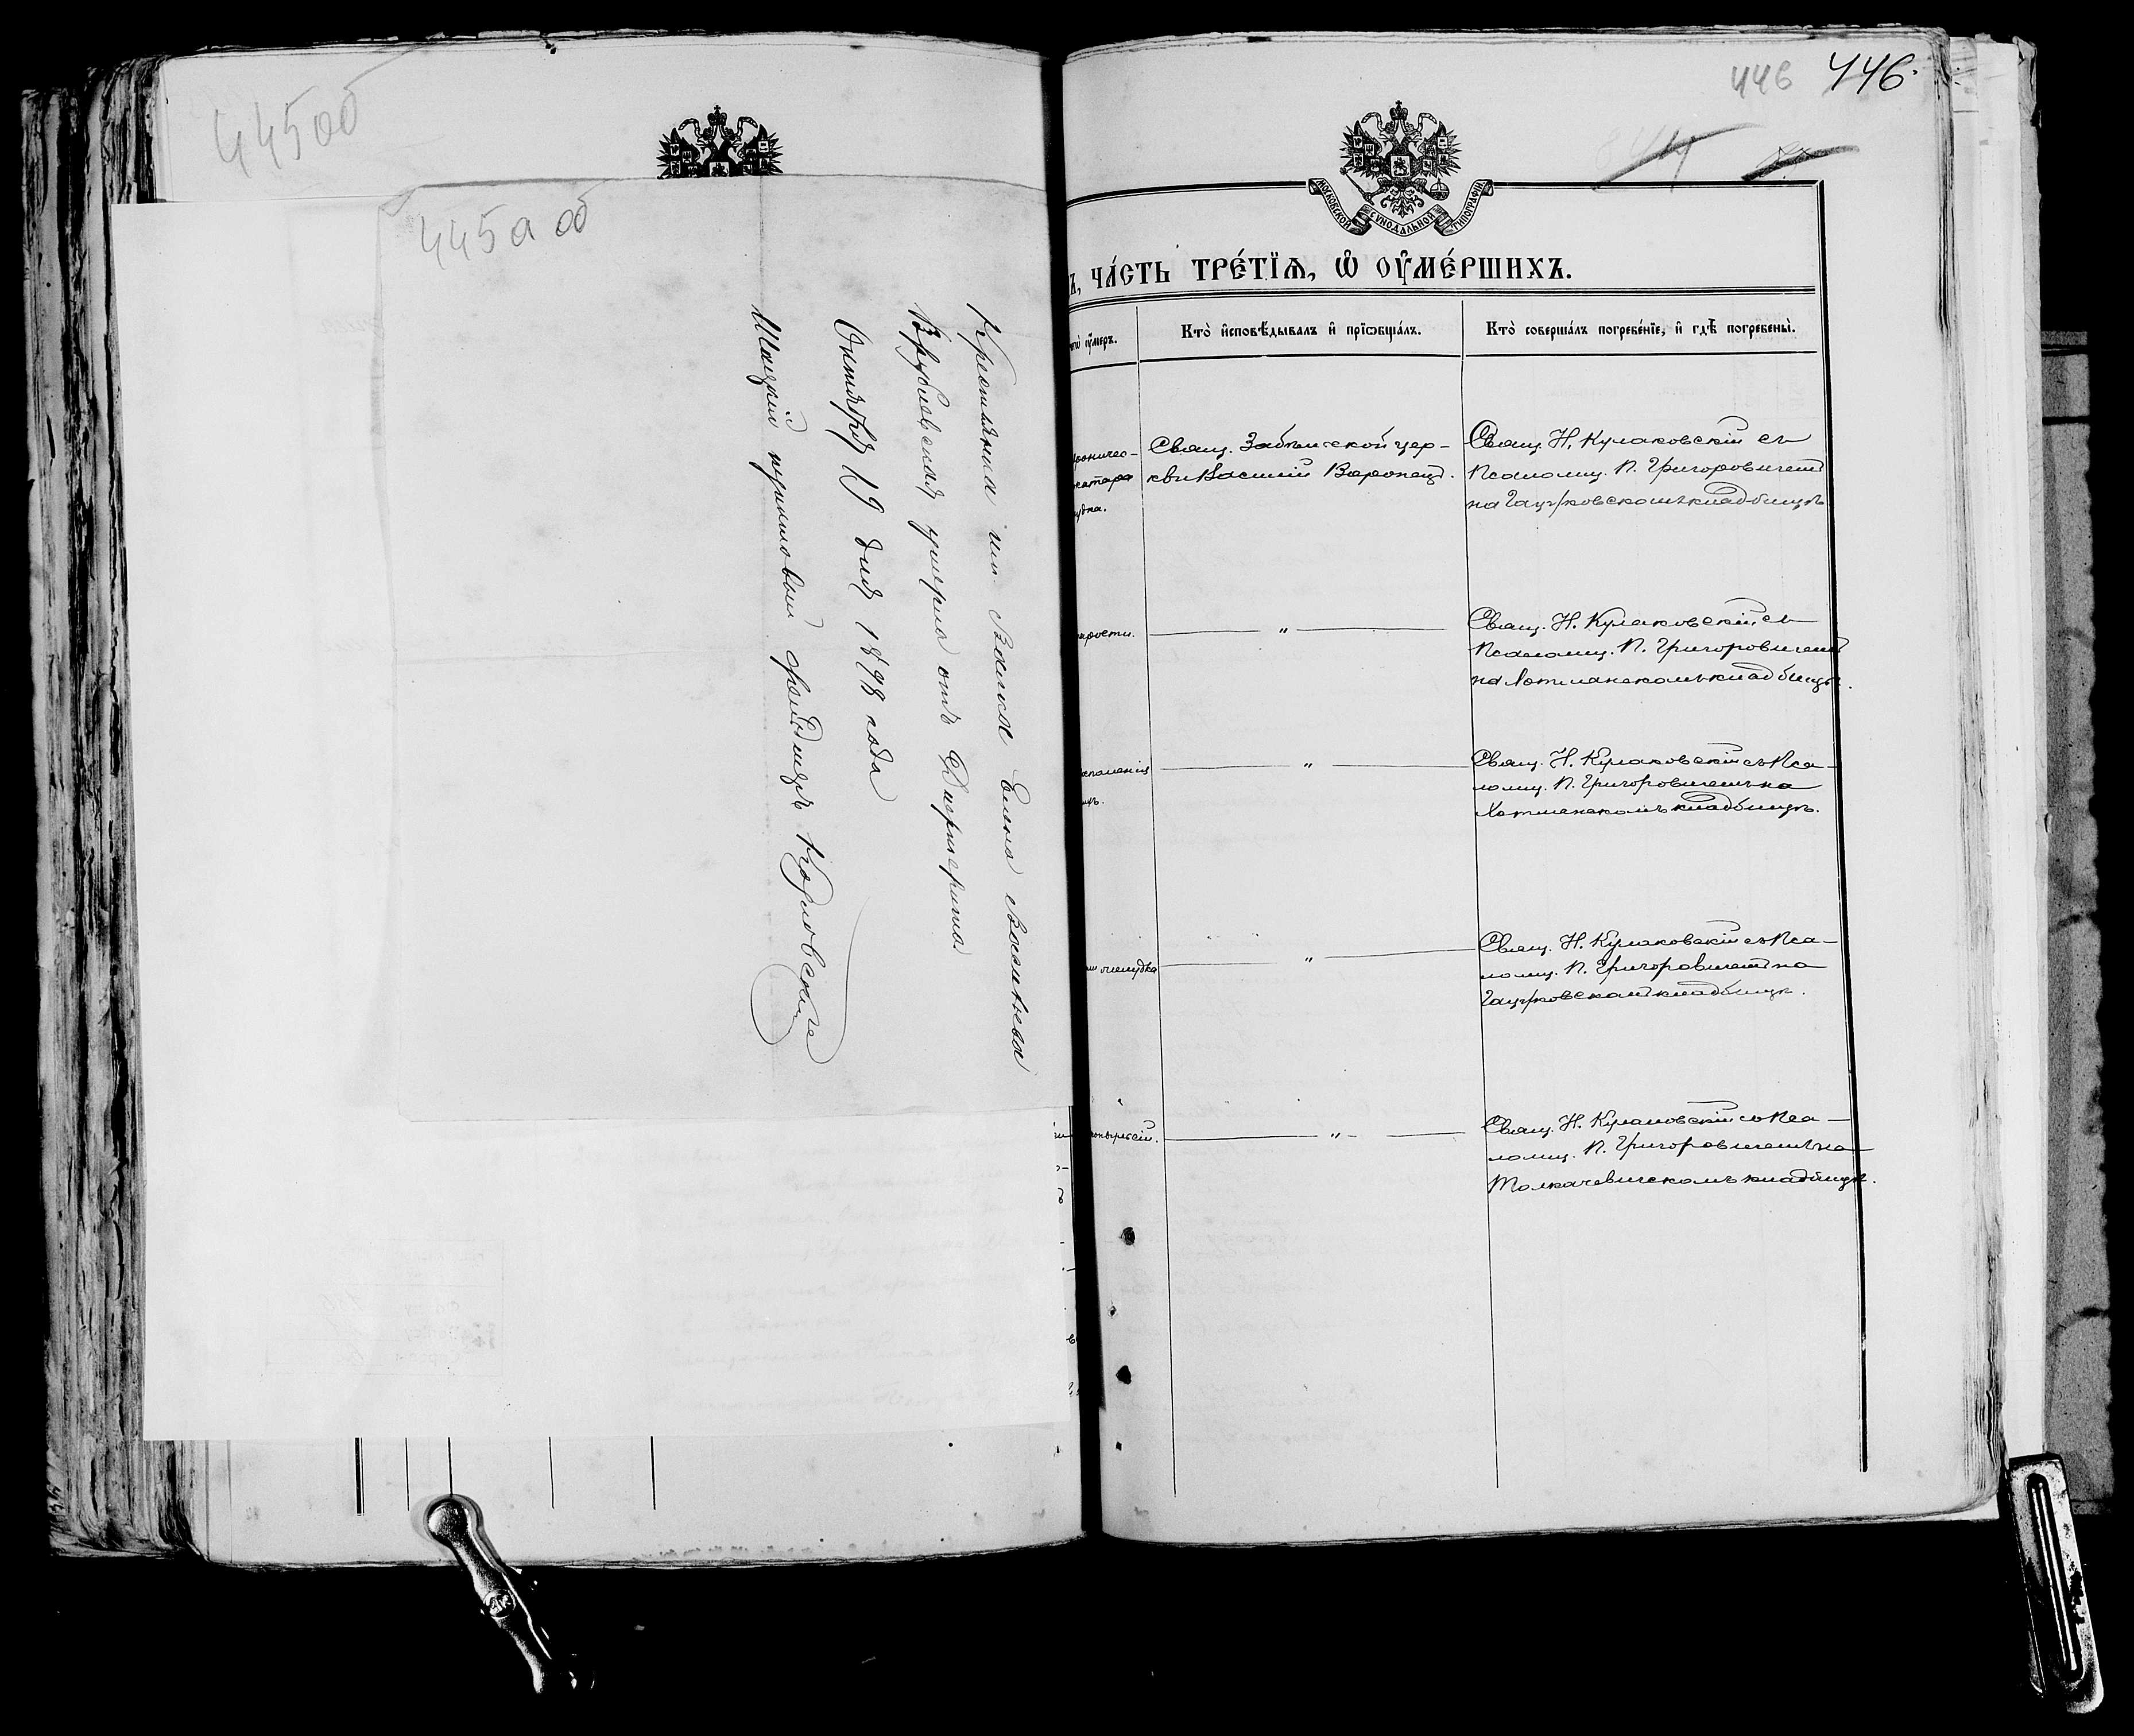 445об
445а об
Крестьянка им. Еленa Васильева
Врублевская умерла отъ Дифтерита.
Октября 19 дня 1898 года
Шацкій пунктовый фельдшеръ Козловскій
446 446.
МОСКОВСКОЙ СѴНОДАЛЬНОЙ ТИПОГРАФІИ
Ъ, ЧА́СТЬ ТРЕ́ТЇѦ, Ѡ҆ ОУ҆МЕ́РШИХЪ.
чегѡ̀ оу҆́меръ.
Кто̀ и҆сповѣ́дывалъ и҆ прїѡбща́лъ.
Кто̀ соверша́лъ погребе́нїе, и҆ гдѣ̀ погребены̀.
хроничес-
катара
лудка.
Свящ. Забѣльской цер-
кви Василій Воронецъ.
Свящ. Н. Кулаковскій съ
Псаломщ. П. Григоровичемъ
на кладбищѣ
старости.
"
Свящ. Н. Кулаковскій съ
Псаломщ. П. Григоровичемъ
на Хотлянскомъ кладбищѣ.
воспаленія
"
Свящ. Н. Кулаковскій съ Пса-
ломщ. П. Григоровичемъ на
Хотлянскомъ кладбищѣ.
желудка
"
Свящ. Н. Кулаковскій съ Пса-
ломщ. П. Григоровичемъ на
кладбищѣ.
"
Свящ. Н. Кулаковскій съ Пса-
ломщ. П. Григоровичемъ на
Толкачевичскомъ кладбищѣ.